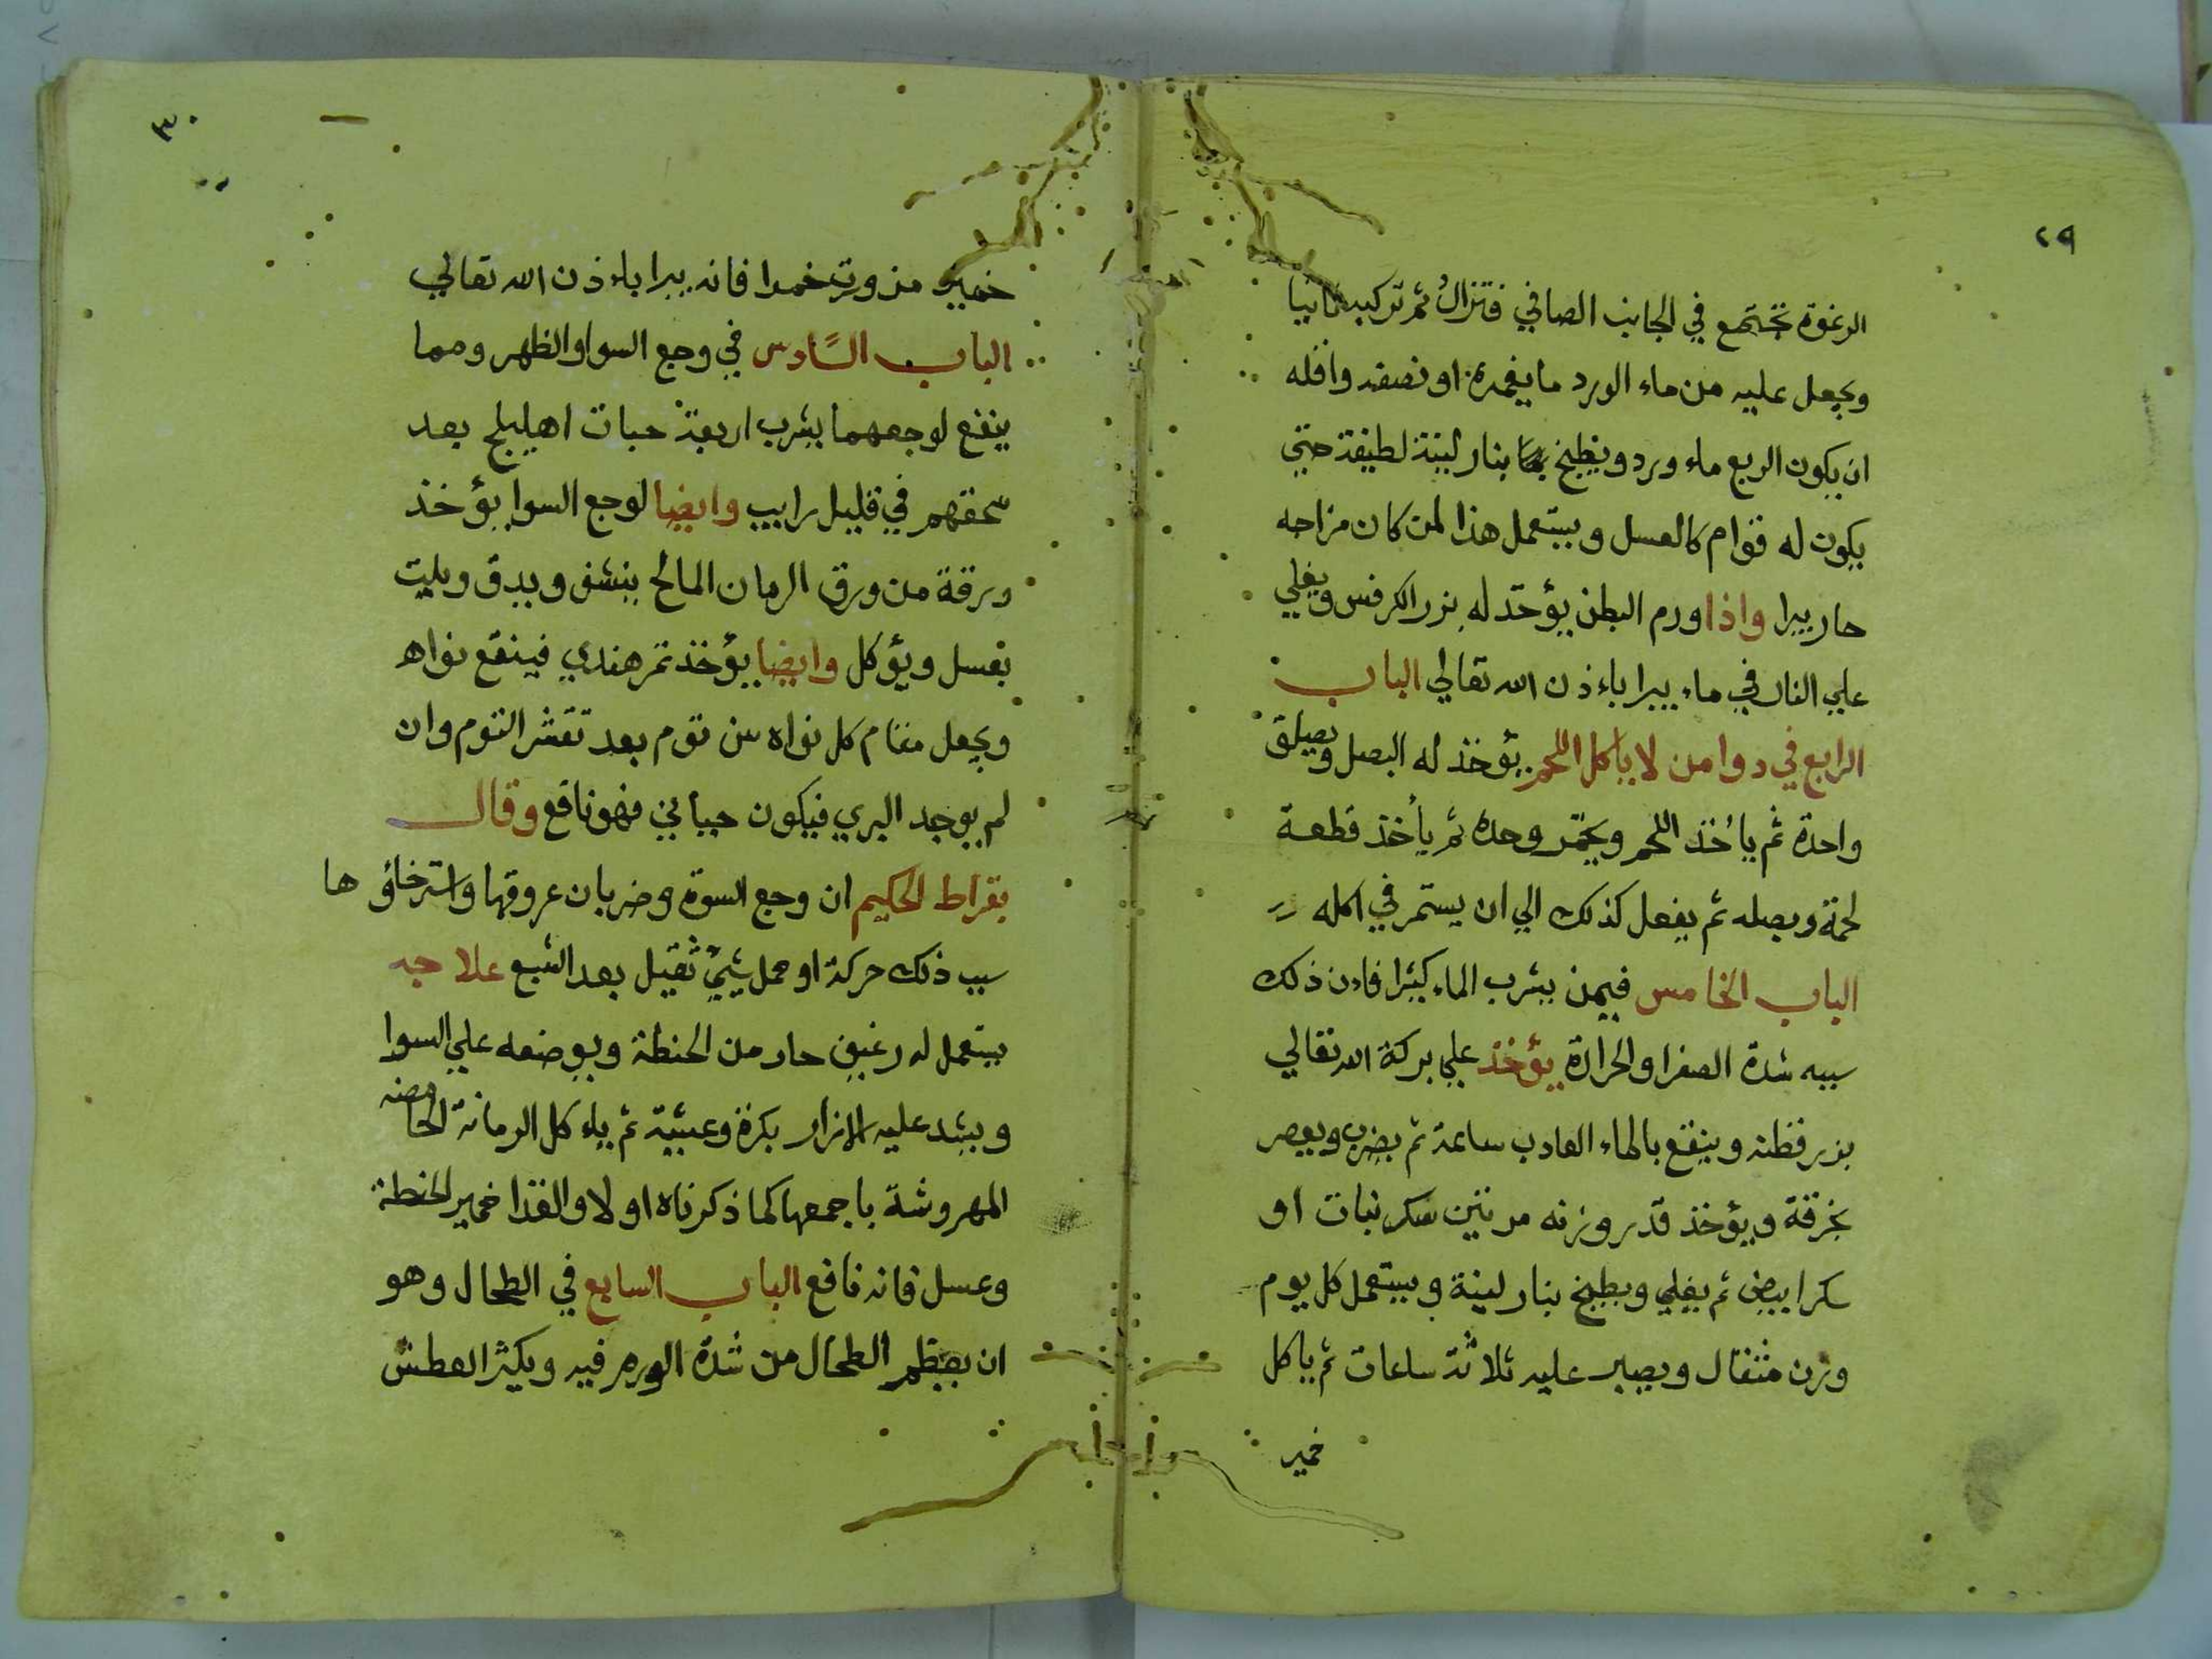 ٢٩
الرغوة تجتمع في الجانب الصافي فتزال ثم تركبه ثانيا
ويجعل عليه من ماء الورد ما يغمره او نصفه واقله
ان يكون الربع ماء ورد ويطبخ بنار لينة لطيفة حتي
يكون له قوام كالعسل ويستعمل هذا لمن كان مزاجه
حار يبرا واذا ورم البطن يؤخد له بزر الكرفس ويغلي
علي النار في ماء يبرا باءذن الله تعالي الباب
الرابع في دوا من لا ياكل اللحم يؤخذ له البصل ويصلق
واحدة ثم ياءخذ اللحم ويجمر وحده ثم يأخذ قطعة
لحمة وبصله ثم يفعل كذلك الي ان يستمر في اكله
الباب الخامس فيمن يشرب الماء كثيرا فاءن ذلك
سببه شدة الصفرا والحرارة يؤخذ علي بركة الله تعالي
بزر قطنه وينقع بالماء العادب ساعة ثم يضرب ويعصر
بخرقة ويؤخذ قدر وزنه مرتين سكر نبات او
سكر ابيض ثم يغلي ويطبخ بنار لينة ويستعمل كل يوم
وزن مثقال ويصبر عليه ثلاثة ساعات ثم ياكل
خمير
٣٠
خمير مزورت خمدا فانه يبرا باءذن الله تعالي
الباب السادس في وجع السوا والظهر ومما
ينفع لوجعهما يشرب اربعة حبات اهليلج بعد
سحقهم في قليل رايب وايضا لوجع السوا يؤخذ
ورقة من ورق الرمان المالح ينشف ويدق ويليت
بعسل ويؤكل وايضا يؤخذ تمر هندي فينقع نواه
ويجعل مقام كل نواه سن توم بعد تقشر التوم وان
لم يوجد البري فيكون جبائي فهو نافع وقال
بقراط الحكيم ان وجع السوة وضربان عروقها واسترخاؤ ها
سبب ذلك حركة او حمل شيئ ثقيل بعد الشبع علاجه
يستعمل له رغيف حار من الحنطة ويوضعه علي السوا
ويشد عليه الازار بكرة وعشية ثم ياءكل الرمانة الحامضه
المهروشة باجمعها كما ذكرناه اولا والغذا خمير الحنطة
وعسل فانه نافع الباب السابع في الطحال وهو
ان يعظم الطحال من شدة الورم فيه ويكثر العطش